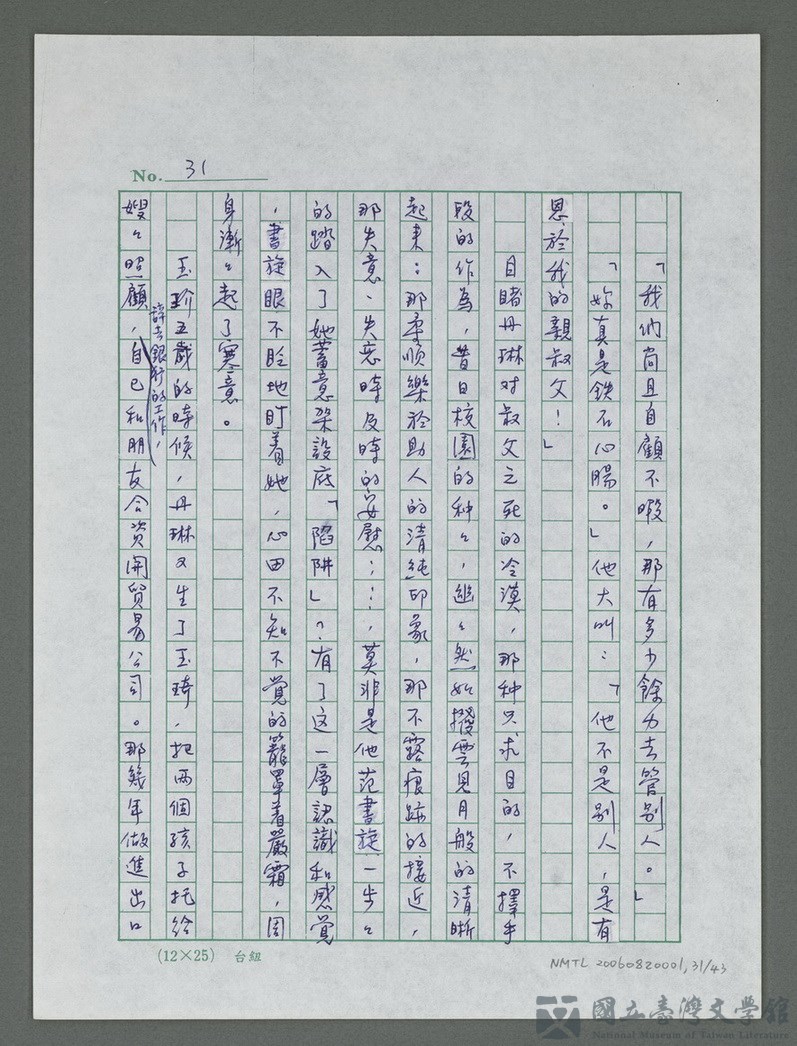 No. 31
「我們尚且自顧不暇，那有多少餘力去管別人。」
「妳真是鉄石心腸。」他大叫：「他不是別人，是有
恩於我的親叔父！」
目睹丹琳对叔父之死的冷漠，那种只求目的，不擇手
段的作為，昔日校園的种々，遽々然如撥雲見月般的清晰
起來：那柔順樂於助人的清純印象，那不露痕跡的接近，
那失意、失恋時及時的安慰……，莫非是他范書旋一步々
的踏入了她蓄意架設底「陷阱」？有了这一層認識和感覚
，書旋眼不眨地盯着她，心田不知不覺的籠罩着嚴霜，周
身漸々起了寒意。
玉玠五歲的時候，丹琳又生了玉琦，把两個孩子托給
嫂々照顧，自己和朋友合資開貿易公司。那幾年做進出口
辞去銀行的工作，
(12×25) 台紐
NMTL 20060820001, 31/43
國立臺灣文學館
National Museum of Taiwan Literature